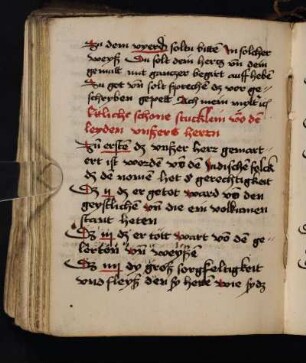 Zu dem vyerd soltu bitt In solcher
weyß Du solt dein hertz vn̄ dein
gemutt mit gantzer begirt auff hebē
Zu got vn̄ solt sprechē dz vor ge-
schryben gepett Ach mein
Etliche schone stucklein vō dē
leyden vnßers herrn
Zū erste dz vnßer herr gemart-
ert ist wordē vō dē Iudische folck
dz de nomē het d gerechtigkeit
Dz ij dz er getot ward vō den
geystlichē vn̄ die ein volkumen
staut heten
Dz iij dz er tött wart vō dē ge-
lerten vn̄ weyßē
Dz iiij dy groß sorgfeltigkeit
vnd fleyß den sy hettē wie sy dz